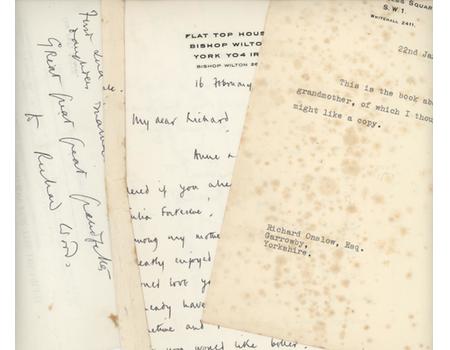 daughter's
Great Great Great Grandfather
to Richard Wood.
FLAT TOP HOUS
BISHOP WILTO
YORK YO4 1R
BISHOP WILTON 26
16 February
My dear Richard
Anne
ered if you
ulia Fortescue!
mong my mothe
eatly enjoyed
ould love
lready have
metime and
you would like better.
ES SQUAR
S.W.1.
WHITEHALL 2411.
22nd Ja
This is the book ab
grandmother, of which I thou
might like a copy.
Richard Onslow, Esq.
Garrowby,
Yorkshire.